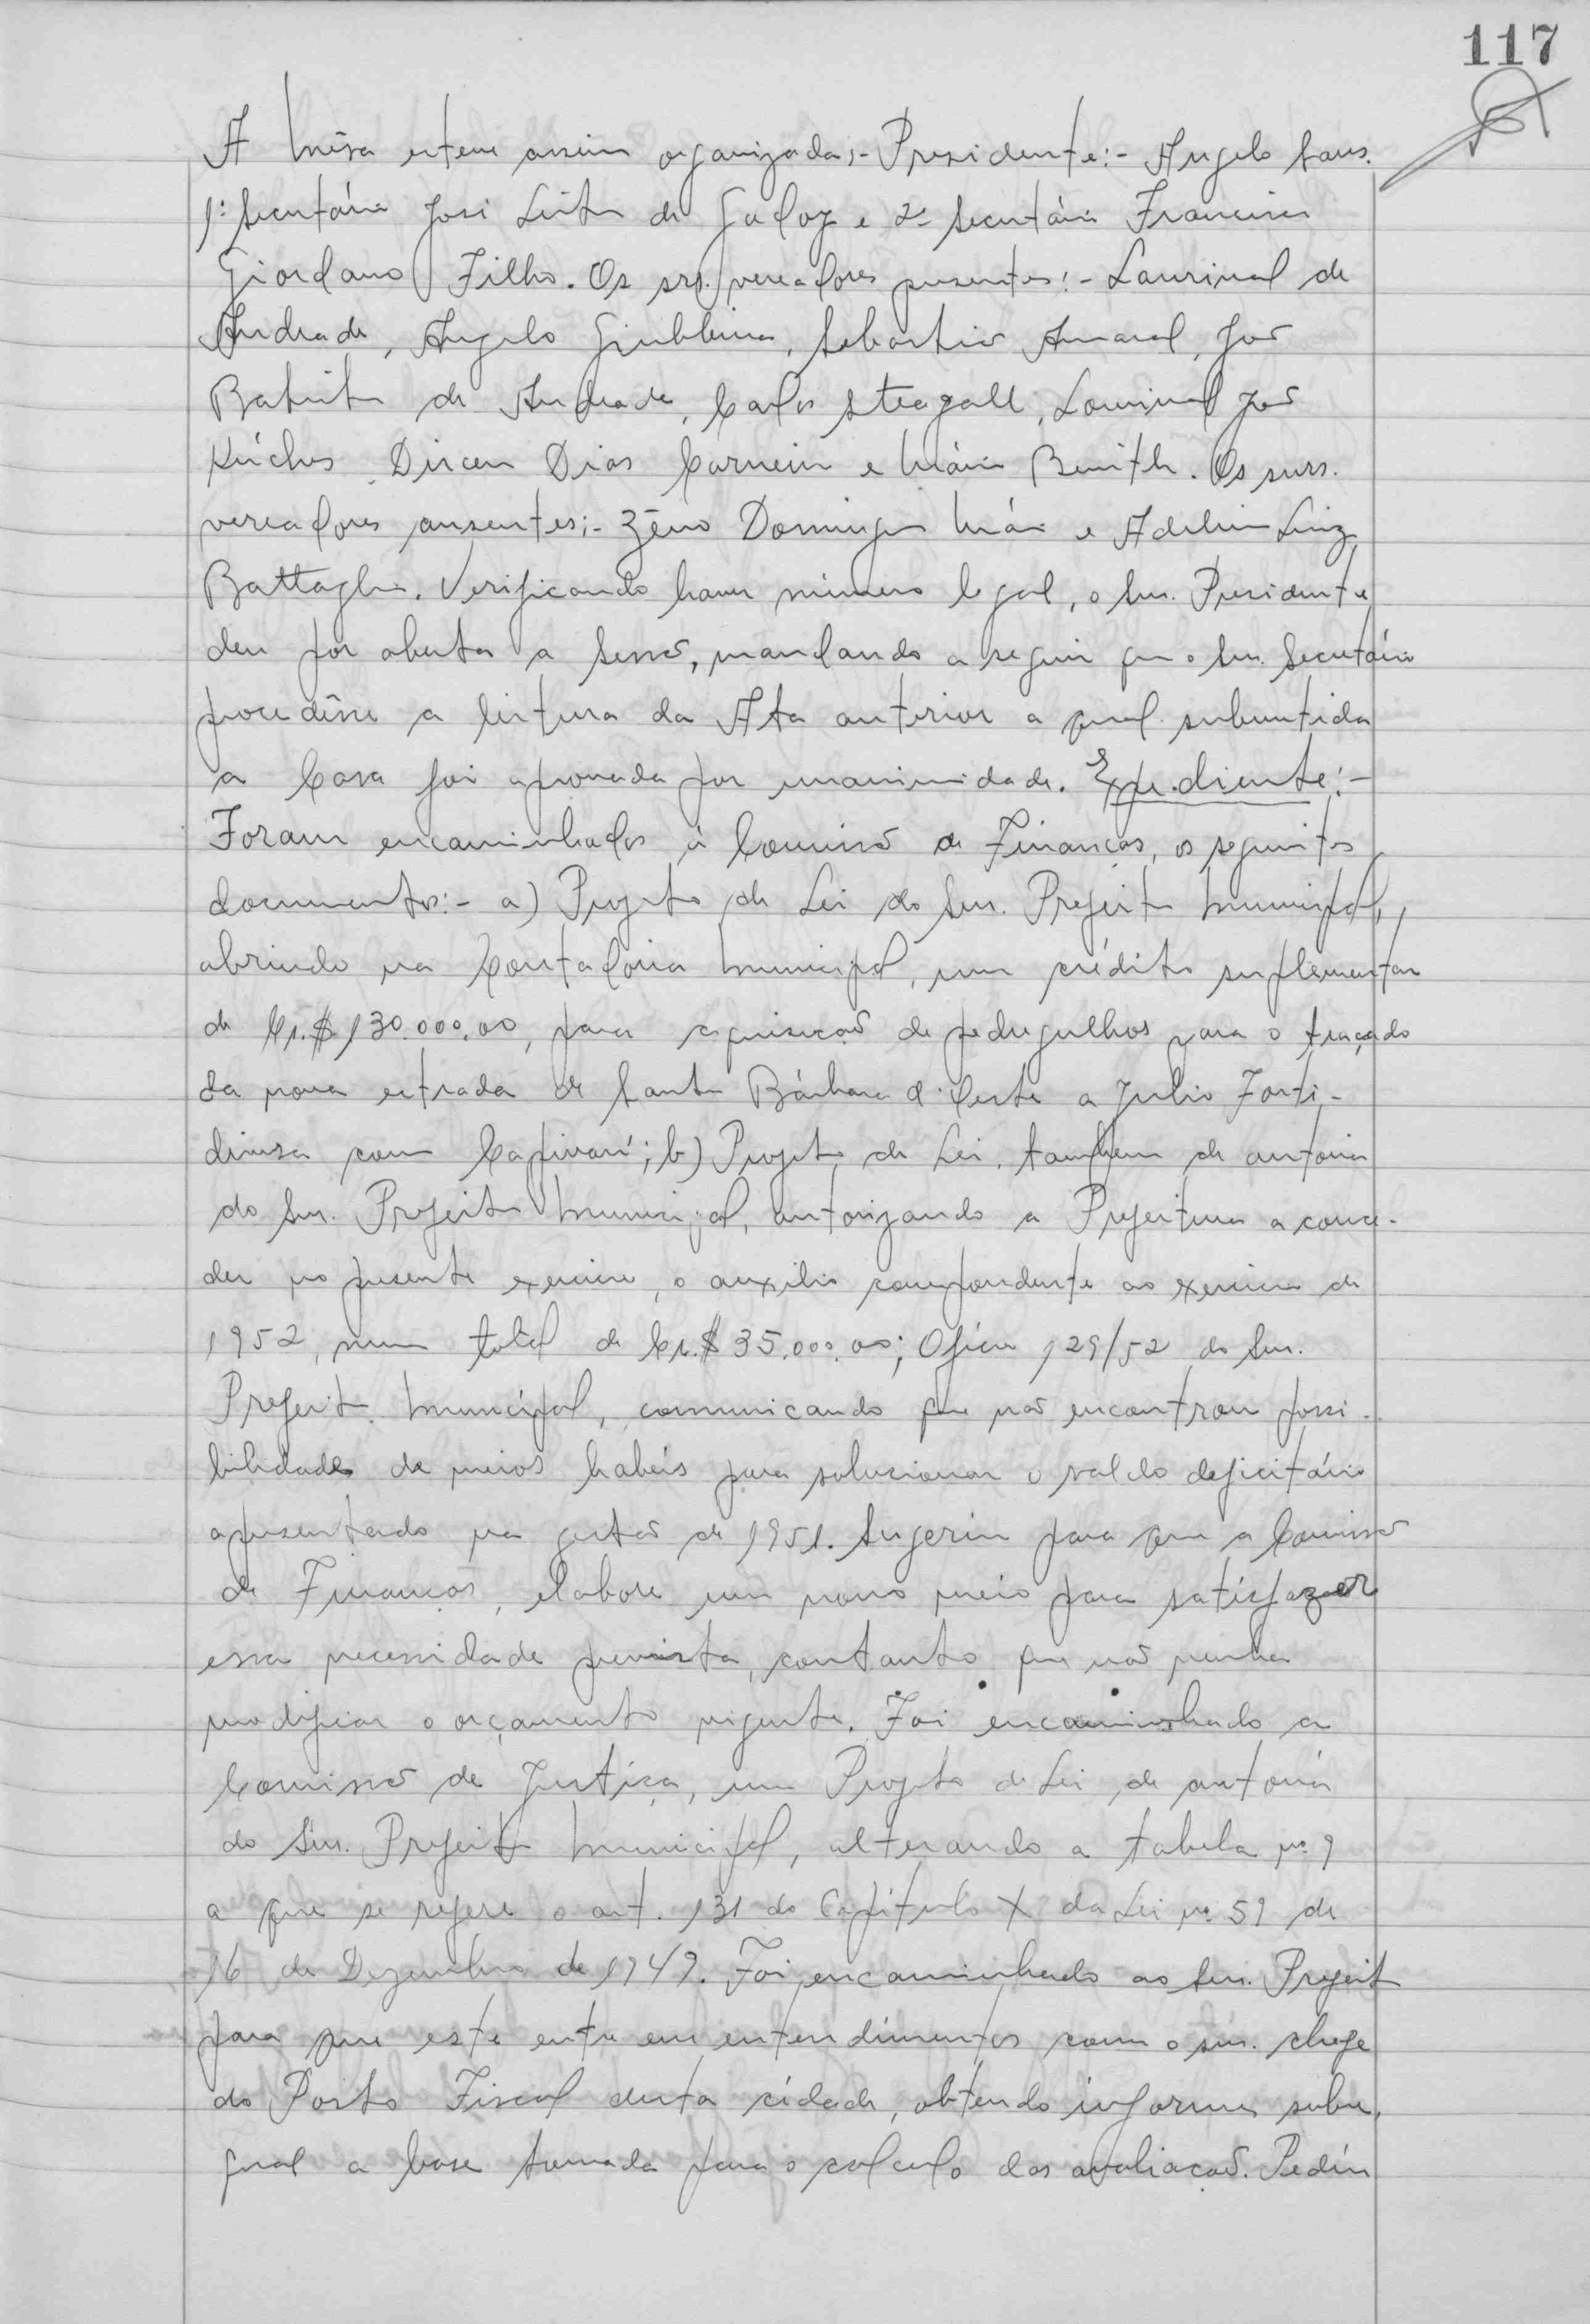 117
A mêsa esteve assim organizada:- Presidente:- Angelo Sans.
1º Secretário José Leite de Godoy e 2º Secretário Francisco
Giordano Filho. Os srs. vereadores presentes:- Laurival de
Andrade, Angelo Giubbina, Sebastião Amaral, João
Batista de Andrade, Carlos Steagall, Lourival José
Dirceu Dias Carneiro e Mário Benith. Os snrs.
vereadores ausentes:- Zêno Domingos Maia e Adelino Luiz
Battaglia. Verificando haver número legal, o Snr. Presidente
deu por aberta a Sessão, mandando a seguir que o Snr. Secretário
procedêsse a leitura da Ata anterior a qual submetida
a Casa foi aprovada por unanimidade. Expediente:-
Foram encaminhados à Comissão de Finanças, os seguintes
documentos:- a) Projeto de Lei do Snr. Prefeito Municipal,
abrindo na Contadoria Municipal, um crédito suplementar
de Cr.$ 130.000,00, para aquisição de pedregulhos para o traçado
da nova estrada de Santa Bárbara d'Oeste a Julio Forti-
divisa com Capivarí; b) Projeto de Lei, tambem de autoria
do Snr. Prefeito Municipal, autorizando a Prefeitura a conce-
der no presente exercicio, o auxilio correspondente ao exercicio de
1952, num total de Cr.$ 35.000,00; Oficio 129/52 do Snr.
Prefeito Municipal, comunicando que não encontrou possi-
bilidades de meios habéis para solucionar o saldo deficitário
apresentado na gestão de 1951. Sugeriu para que a Comissão
de Finanças, elabore um novo meio para satisfazer
essa necessidade prevista, contanto que não venha
modificar o orçamento vigente. Foi encaminhado a
Comissão de Justiça, um Projeto de Lei, de autoria
do Snr. Prefeito Municipal, alterando a tabela nº 9
a que se refere o art. 131 do Capítulo X da Lei nº 59 de
16 de Dezembro de 1949. Foi encaminhado ao Snr. Prefeito
para que este entre em entendimentos com o snr. chefe
do Posto Fiscal desta cidade, obtendo informes sobre,
qual a base tomada para o calculo das avaliação. Pediu